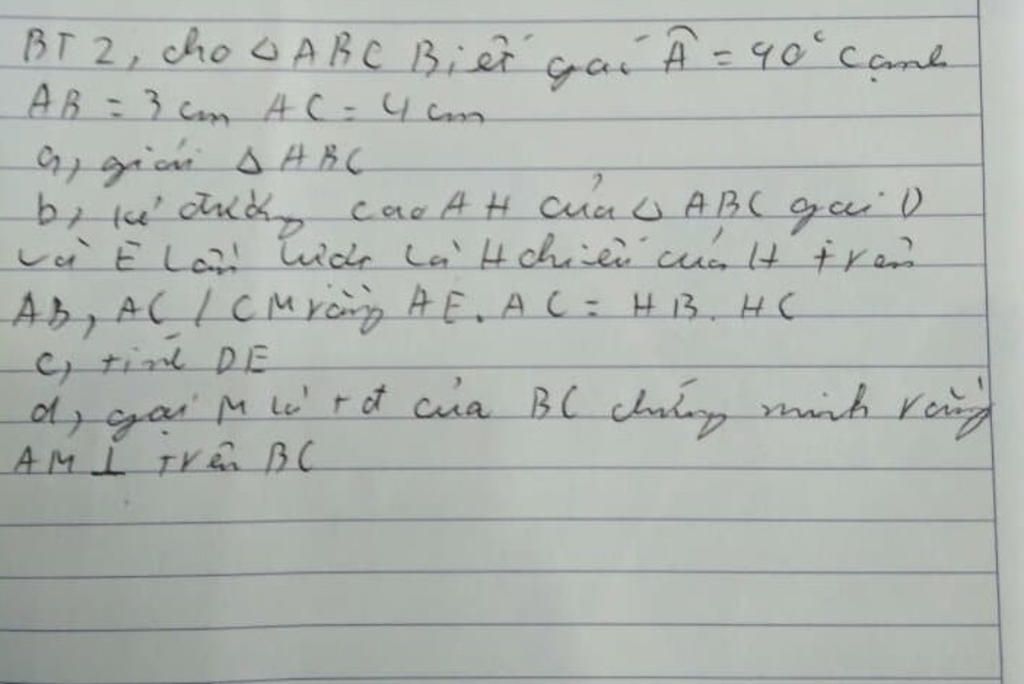 BT 2, cho △ABC Biết góc Â = 90° cạnh
AB = 3 cm AC = 4 cm
a, giải △ABC
b, kẻ đường cao AH của △ABC gọi D
và E lần lượt là H chiếu của H trên
AB, AC / CM rằng AE. AC = HB. HC
c, tính DE
d, gọi M là tđ của BC chứng minh rằng
AM ⊥ trên BC